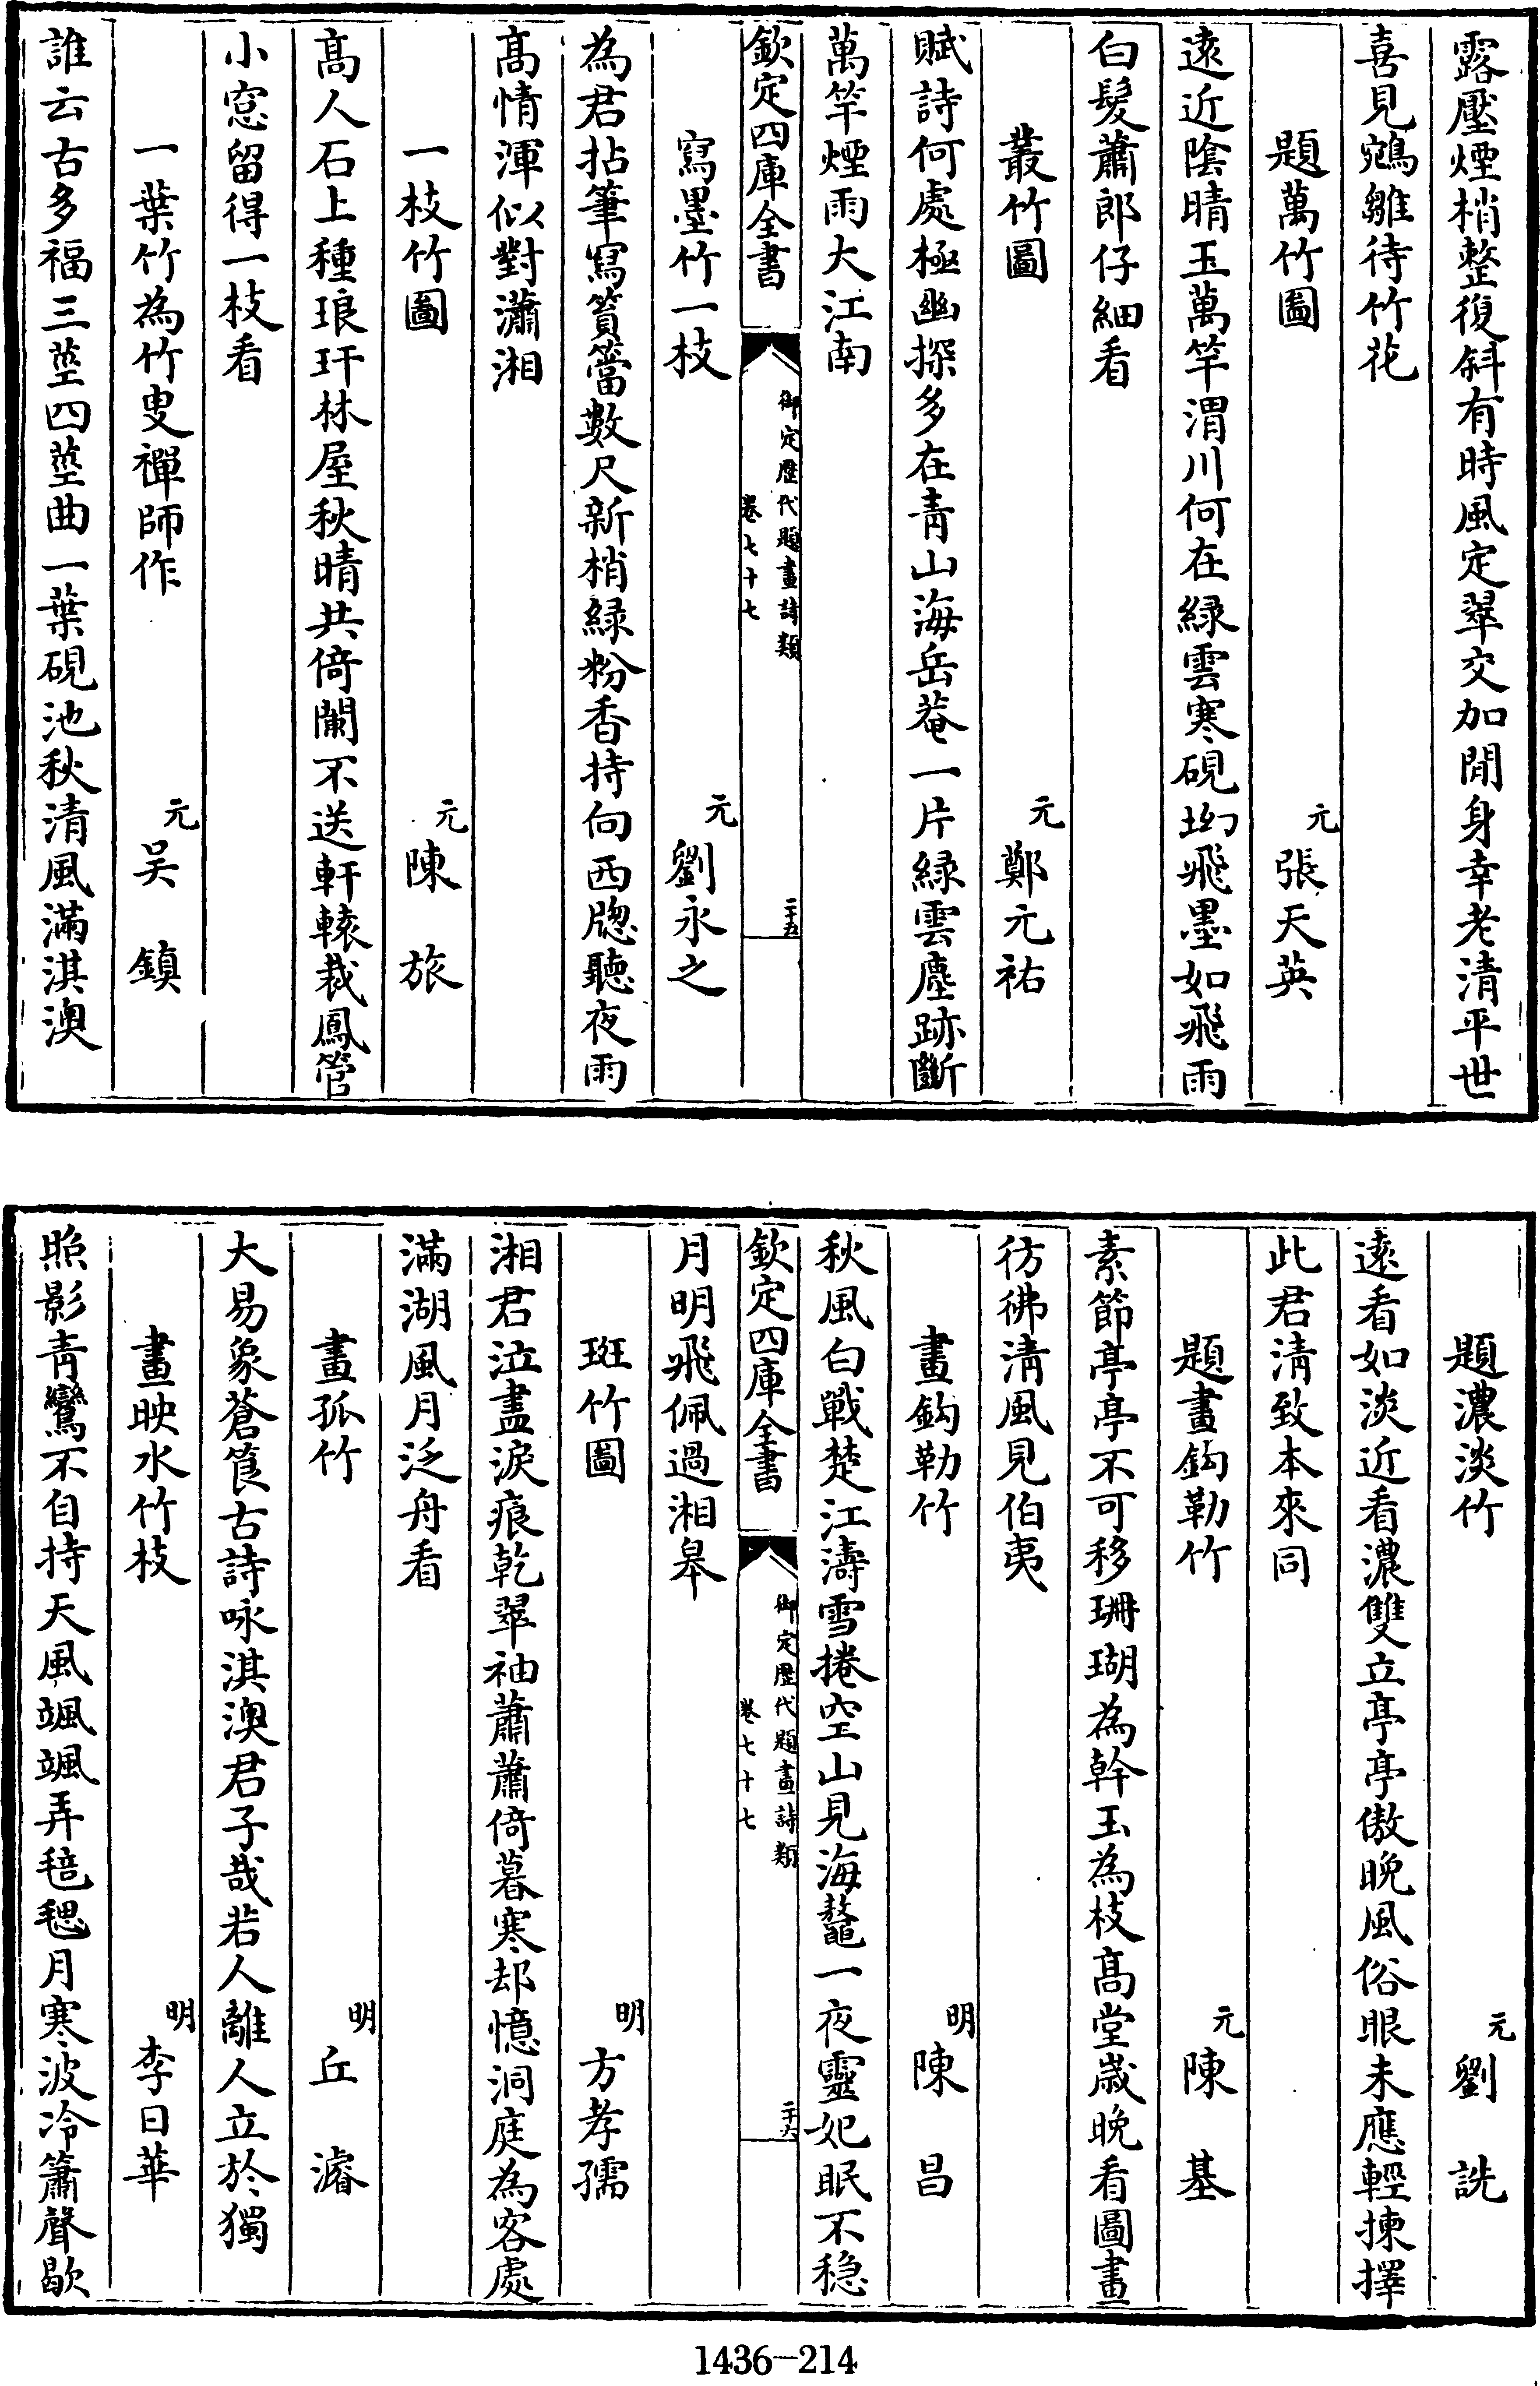 露壓煙梢整復斜有時風定翠交加閒身幸老清平世
喜見鵷雛待竹花
題萬竹圖 元張天英
遠近陰晴玉萬竿渭川何在緑雲寒硯坳飛墨如飛雨
白髮蕭郎仔細看
叢竹圖 元鄭元祐
賦詩何處極幽探多在青山海岳菴一片緑雲塵跡斷
萬竿煙雨大江南
欽定四庫全書 御定歷代題畫詩類 卷七十七 二十五
寫墨竹一枝 元劉永之
為君拈筆寫篔簹數尺新梢緑粉香持向西牕聽夜雨
髙情渾似對瀟湘
一枝竹圖 元陳旅
髙人石上種琅玕林屋秋晴共倚闌不送軒轅裁鳳管
小窓留得一枝看
一葉竹為竹叟禪師作 元吴鎮
誰云古多福三莖四莖曲一葉硯池秋清風滿淇澳
題濃淡竹 元劉詵
遠看如淡近看濃雙立亭亭傲晚風俗眼未應輕揀擇
此君清致本來同
題畫鈎勒竹 元陳基
素節亭亭不可移珊瑚為幹玉為枝髙堂歲晚看圖畫
彷彿清風見伯夷
畫鈎勒竹 明陳昌
秋風白戰楚江濤雪捲空山見海鼇一夜靈妃眠不穏
月明飛佩過湘皋
欽定四庫全書 御定歷代題畫詩類 卷七十七 二十六
斑竹圖 明方孝孺
湘君泣盡淚痕乾翠袖蕭蕭倚暮寒却憶洞庭為客處
滿湖風月泛舟看
畫孤竹 明丘濬
大易象蒼筤古詩咏淇澳君子哉若人離人立於獨
畫映水竹枝 明李日華
照影青鸞不自持天風颯颯弄毰毸月寒波冷簫聲歇
1436-214